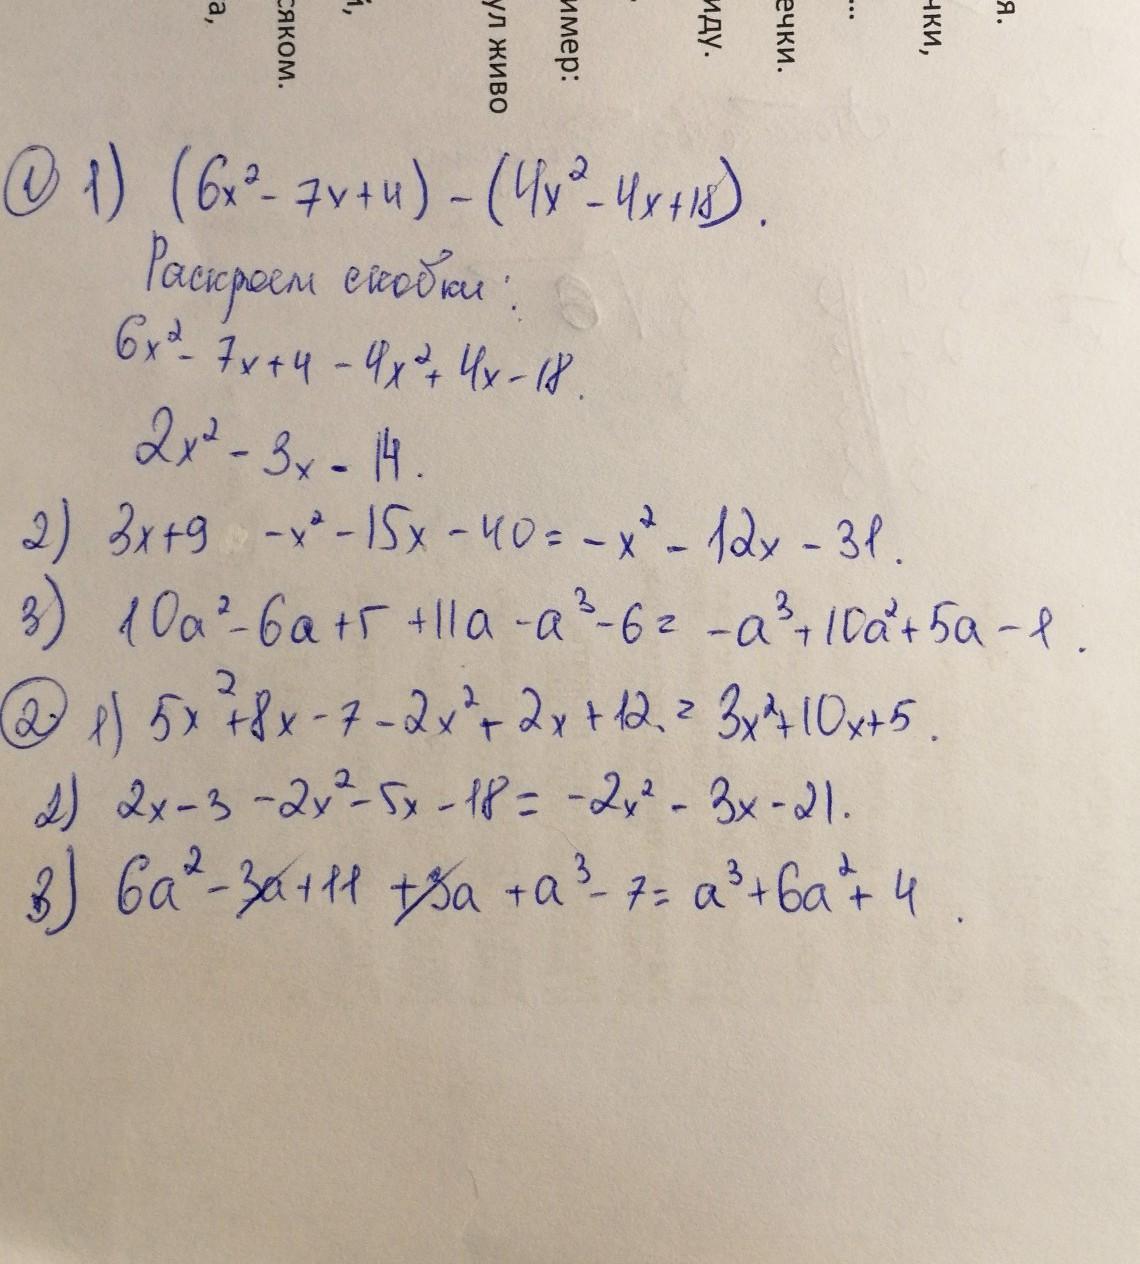 а,
сяком.
й,
ул живо
имер:
иду.
ечки.
...
чки,
я.
① 1) (6x² - 7x + 4) - (4x² - 4x + 18).
Раскроем скобки:
6x² - 7x + 4 - 4x² + 4x - 18.
2x² - 3x - 14.
2) 3x + 9 - x² - 15x - 40 = -x² - 12x - 31.
3) 10a² - 6a + 5 + 11a - a³ - 6 = -a³ + 10a² + 5a - 1.
② 1) 5x² + 8x - 7 - 2x² + 2x + 12 = 3x² + 10x + 5.
2) 2x - 3 - 2x² - 5x - 18 = -2x² - 3x - 21.
3) 6a² - 3a + 11 + 3a + a³ - 7 = a³ + 6a² + 4.